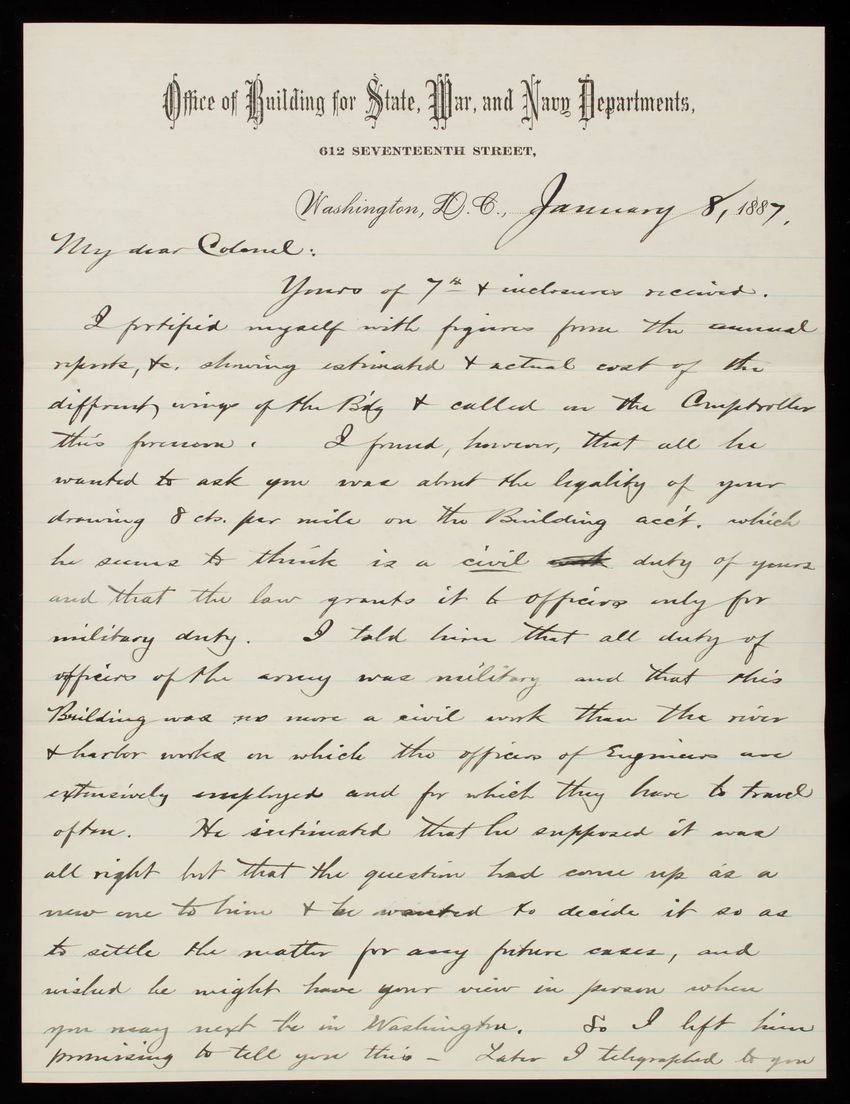 Office of Building for State, War, and Navy Departments,
612 SEVENTEENTH STREET,
Washington, D.C., January 8, 1887.
My dear Colonel:
Yours of 7th & inclosures received.
I fortified myself with figures from the annual
reports, &c. showing estimated & actual cost of the
different wings of the B'dg & called on the Comptroller
this forenoon. I found, however, that all he
wanted to ask you was about the legality of your
drawing 8 cts. per mile on the Building acc't. which
he seems to think is a civil work duty of yours
and that the law grants it to officers only for
military duty. I told him that all duty of
officers of the army was military and that this
Building was no more a civil work than the river
& harbor works on which the officers of Engineers are
extensively employed and for which they have to travel
often. He intimated that he supposed it was
all right but that the question had come up as a
new one to him & he wanted to decide it so as
to settle the matter for any future cases, and
wished he might have your view in person when
you may next be in Washington. So I left him
promising to tell you this – Later I telegraphed to you